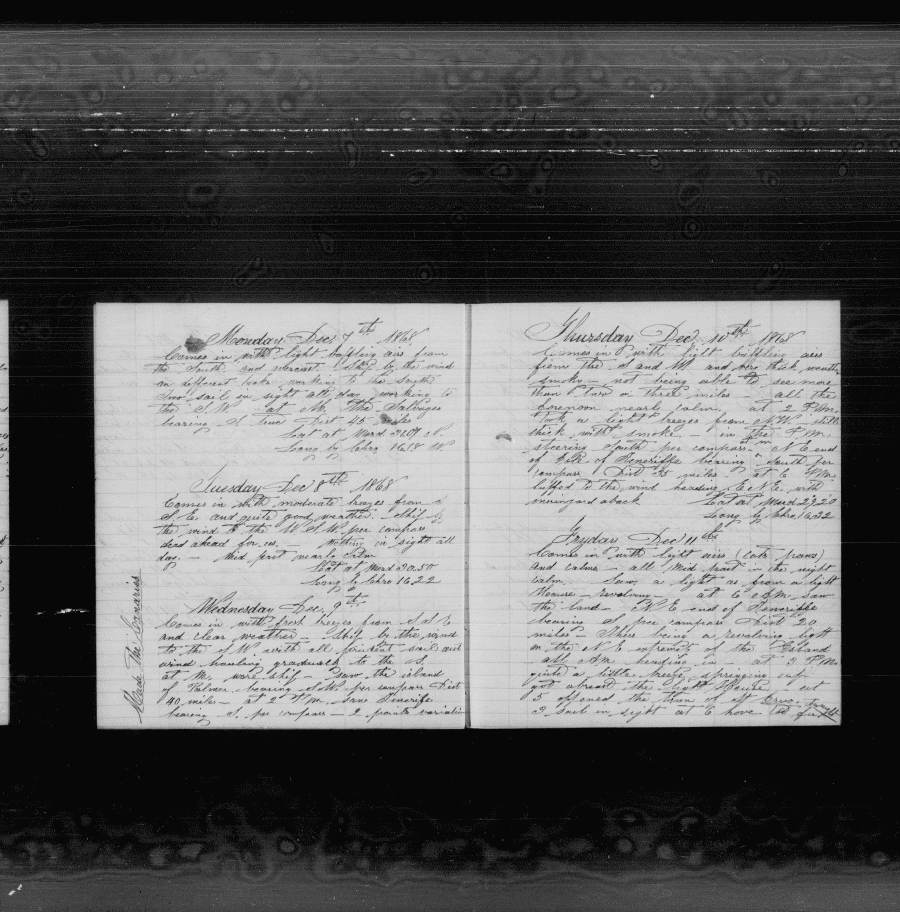 Monday Dec 7th 1868
Comes in with light baffling airs from
the South and overcast. Ship by the wind
on different tacks working to the South
Two sail in sight all day working to
the S.W. at M. The Salvages
bearing S true Dist 45 miles
Lat at Merd 30.09 N.
Long by Chro 16.18 W.
Tuesday Dec 8th 1868
Comes in with moderate breezes from
S.E. and quite good weather. Ship by
the wind to the W.S.W. per compass
dead ahead for us. Nothing in sight all
day. Mid part nearly calm
Lat at Merd 30.50
Long by Chro 16.22
Wednesday Dec 9th
Comes in with fresh breezes from S S E
and clear weather - Ship by the wind
to the S W with all prudent sail and
wind hauling gradually to the W.
at M. wore ship. Saw the island
of Palmer bearing S.W. per compass Dist
40 miles - at 2 P.M. saw Teneriffe
bearing S. per compass - 2 points variation
Made The Canaries
Thursday Dec 10th 1868
Comes in with light baffling airs
from the S and W and very thick weather
smoky - not being able to see more
than two or three miles - all the
forenoon nearly calm. at 2 P.M.
took a light breeze from N.W. still
thick with smoke - in the P M
steering South per compass N E end
of Teneriffe bearing South per
compass Dist 35 miles at 6 P.M.
luffed to the wind heading E.N.E. with
mainyard aback Lat at Merd 29.20
Long by Chro 16.32
Fryday Dec 11th
Comes in with light airs (cats paws)
and calms - all Mid part in the night
calm. Saw a light as from a light
House - revolving - at 6 A.M. saw
the land - N.E. end of Teneriffe
bearing S per compass Dist 20
miles - There being a revolving light
on the N E extremity of the Island
all AM heading in at 3 P.M.
quite a little breeze springing up
got abreast the Light House - at
5 opened the town of Sta Cruz
3 sail in sight at 6 hove to for night